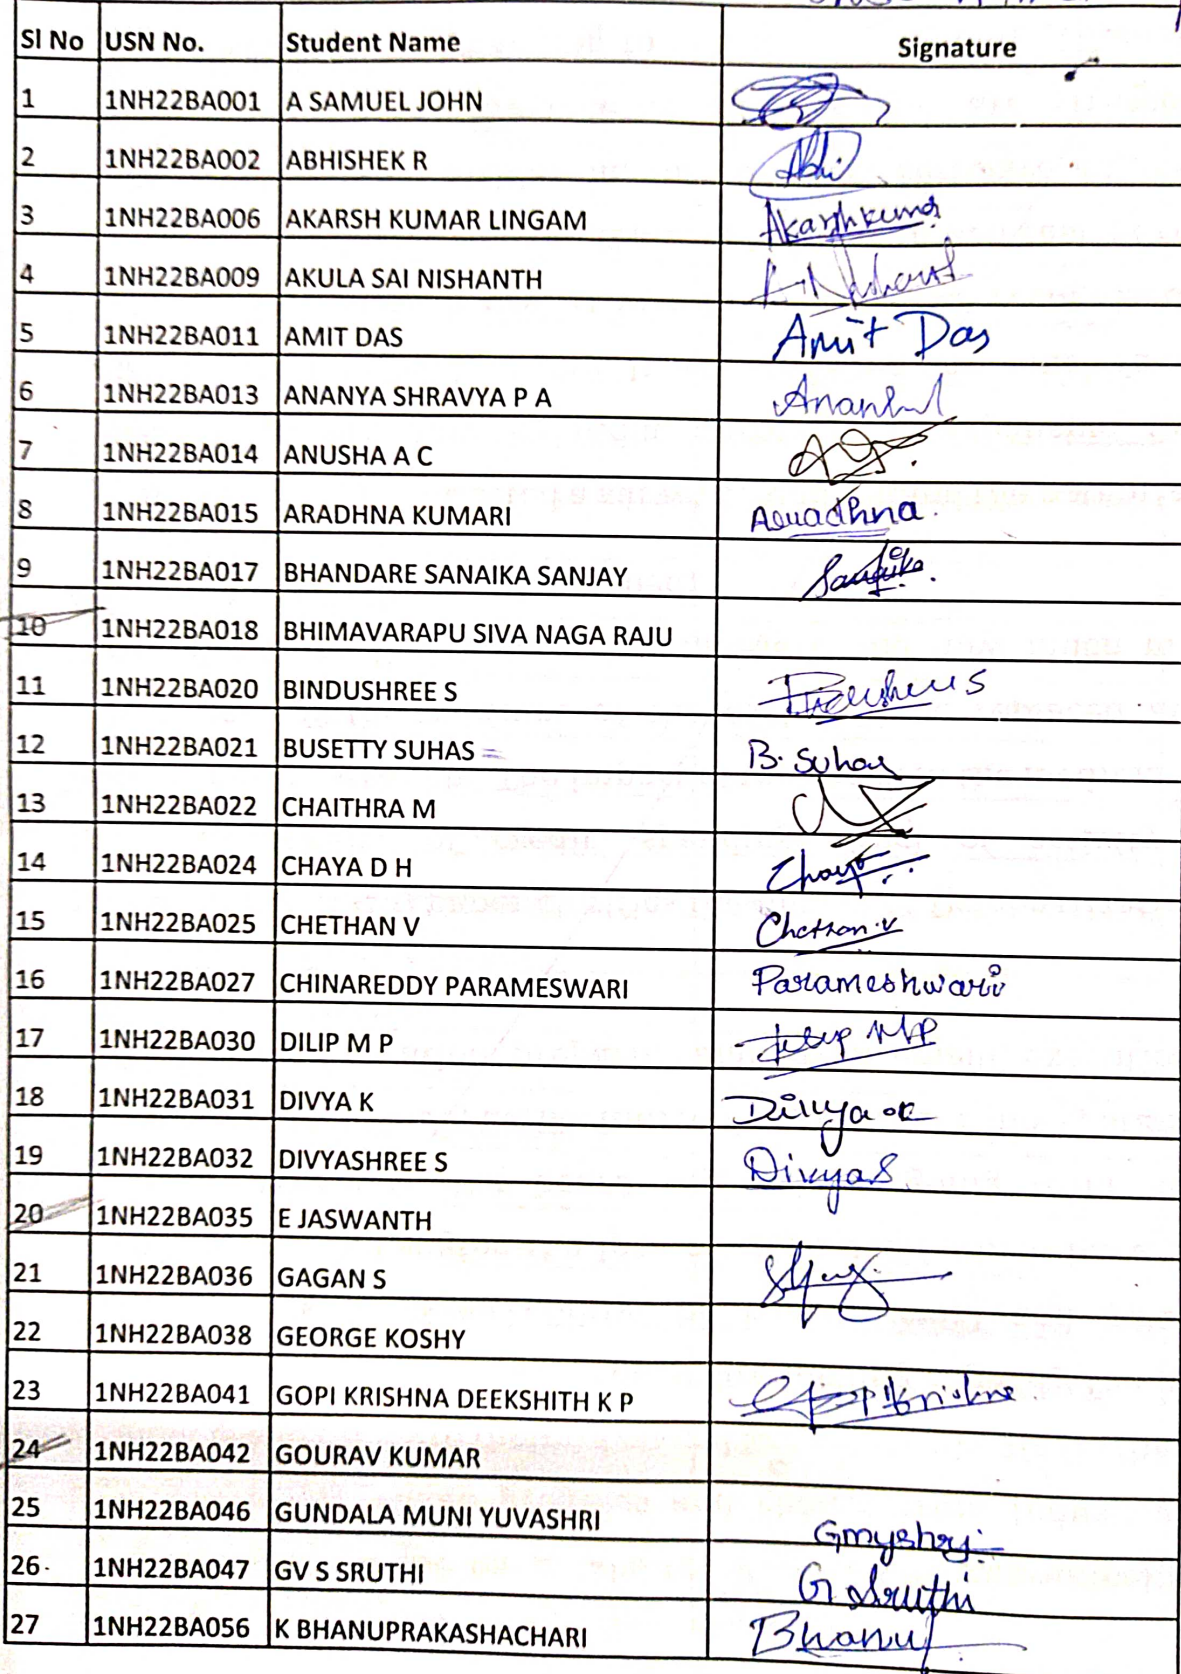 Sl No USN No. Student Name Signature
1 1NH22BA001 A SAMUEL JOHN
2 1NH22BA002 ABHISHEK R Abhi
3 1NH22BA006 AKARSH KUMAR LINGAM Akarshkumar
4 1NH22BA009 AKULA SAI NISHANTH
5 1NH22BA011 AMIT DAS Amit Das
6 1NH22BA013 ANANYA SHRAVYA P A
7 1NH22BA014 ANUSHA A C
8 1NH22BA015 ARADHNA KUMARI Aaradhna.
9 1NH22BA017 BHANDARE SANAIKA SANJAY Sanaika
10 1NH22BA018 BHIMAVARAPU SIVA NAGA RAJU
11 1NH22BA020 BINDUSHREE S
12 1NH22BA021 BUSETTY SUHAS = B. Suhas
13 1NH22BA022 CHAITHRA M
14 1NH22BA024 CHAYA D H Chaya
15 1NH22BA025 CHETHAN V Chethan.V
16 1NH22BA027 CHINAREDDY PARAMESWARI Parameshwari
17 1NH22BA030 DILIP M P Dilip MP
18 1NH22BA031 DIVYA K Divya K
19 1NH22BA032 DIVYASHREE S Divya S
20 1NH22BA035 E JASWANTH
21 1NH22BA036 GAGAN S
22 1NH22BA038 GEORGE KOSHY
23 1NH22BA041 GOPI KRISHNA DEEKSHITH K P Gopi Krishna
24 1NH22BA042 GOURAV KUMAR
25 1NH22BA046 GUNDALA MUNI YUVASHRI Gmyshry
26 1NH22BA047 GV S SRUTHI G Sruthi
27 1NH22BA056 K BHANUPRAKASHACHARI Bhanu